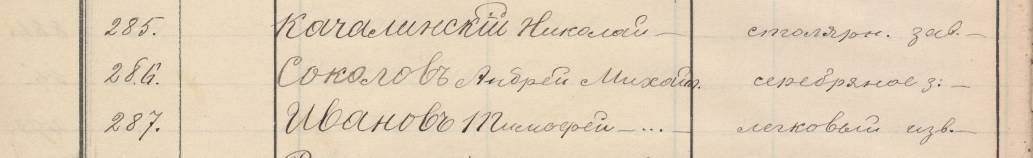 285. Качалинскій Николай — столярн. зав. —
286. Соколовъ Андрей Михайл. серебряное з: —
287. Ивановъ Тимофей — ... — легковый изв. —